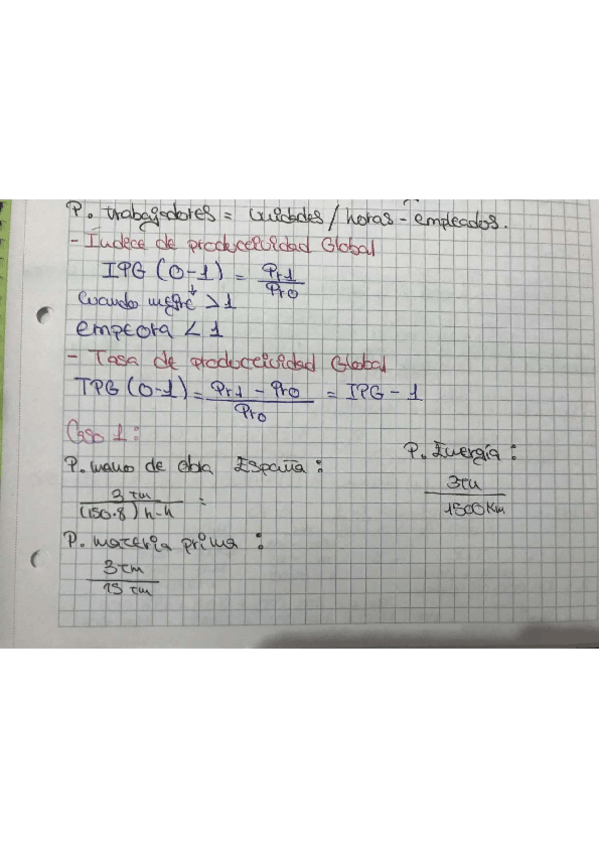 P. trabajadores = unidades / horas - empleados.
- Índece de productividad Global
IPG (0-1) = Pr1 / Pr0
Cuando megre > 1
empeora < 1
- Tasa de productividad Global
TPG (0-1) = Pr1 - Pr0 / Pr0 = IPG - 1
Caso 1:
P. mano de obra España:
3 tm / (150.8) h-h =
P. Energía:
3tm / 1500 Km
P. materia prima:
3tm / 15 tm